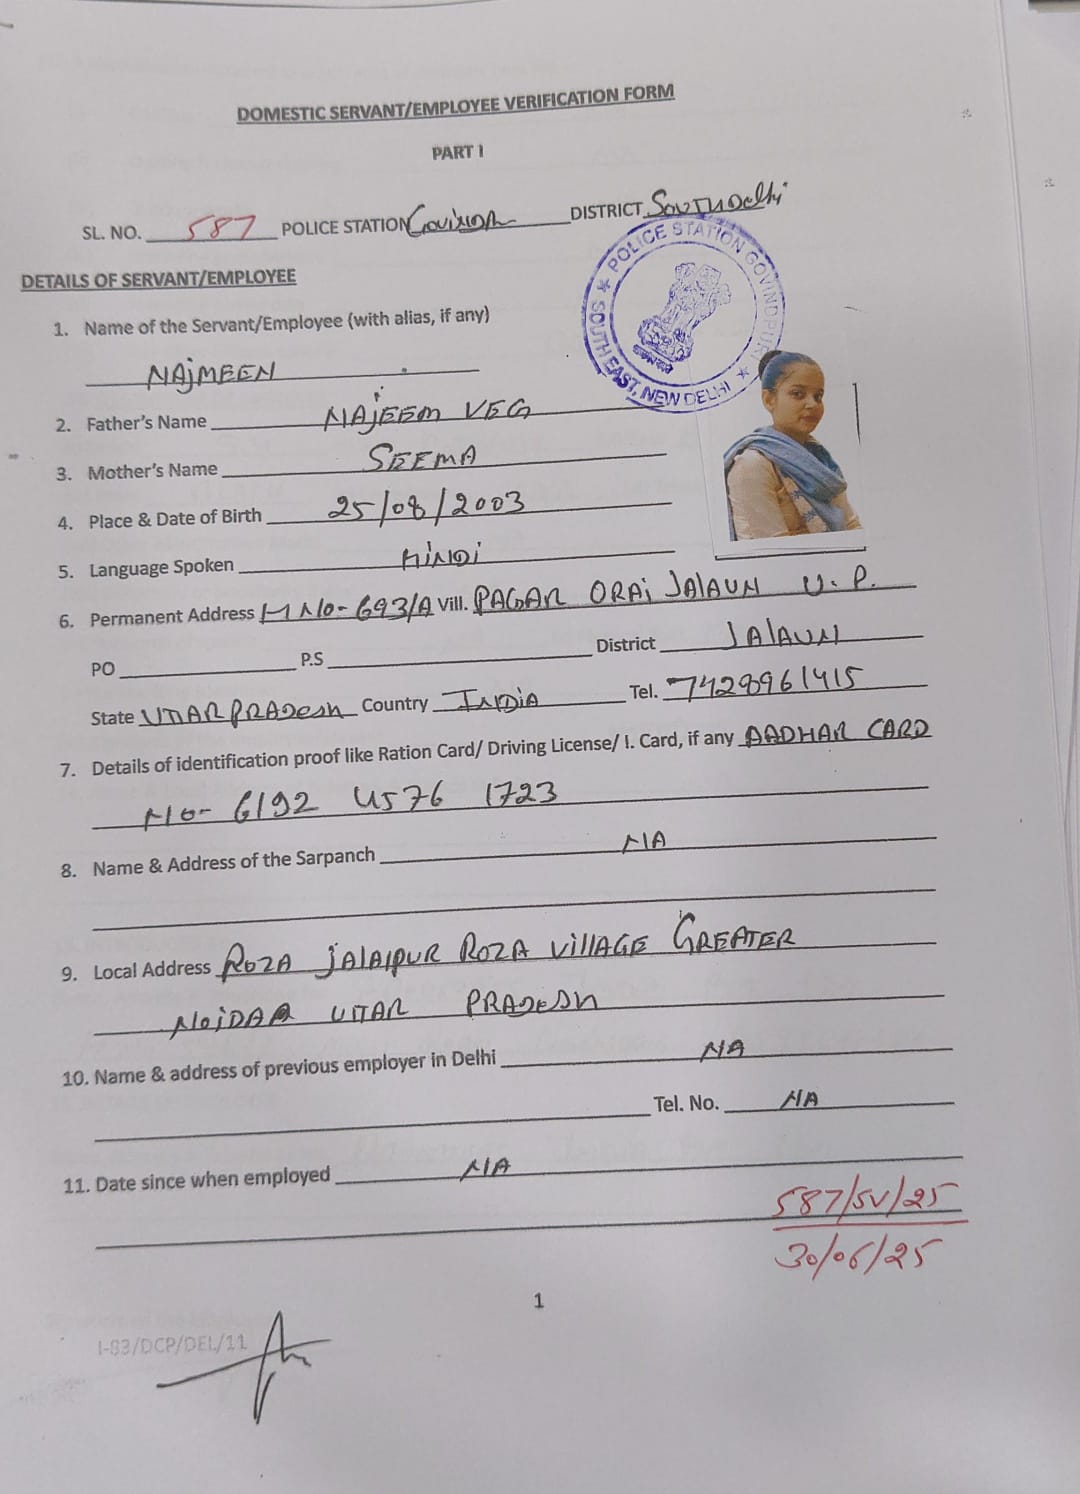 DOMESTIC SERVANT/EMPLOYEE VERIFICATION FORM
PART I
SL. NO. 587 POLICE STATION DISTRICT South Delhi
POLICE STATION GOVINDPURI
SOUTH EAST, NEW DELHI
DETAILS OF SERVANT/EMPLOYEE
1. Name of the Servant/Employee (with alias, if any)
NAJMEEN
2. Father's Name NAJEEM VEG
3. Mother's Name SEEMA
4. Place & Date of Birth 25/08/2003
5. Language Spoken HINDI
6. Permanent Address H NO- 693/A Vill. ORAI JALAUN U.P.
PO P.S District JALAUN
State UTTAR PRADESH Country INDIA Tel. 7428961415
7. Details of identification proof like Ration Card/ Driving License/ I. Card, if any AADHAR CARD
NO- 6192 4576 1723
8. Name & Address of the Sarpanch NA
9. Local Address ROZA JALALPUR ROZA VILLAGE GREATER
NOIDA UTTAR PRADESH
10. Name & address of previous employer in Delhi NA
Tel. No. NA
11. Date since when employed NA
587/SV/25
30/06/25
1
I-83/DCP/DEL/11